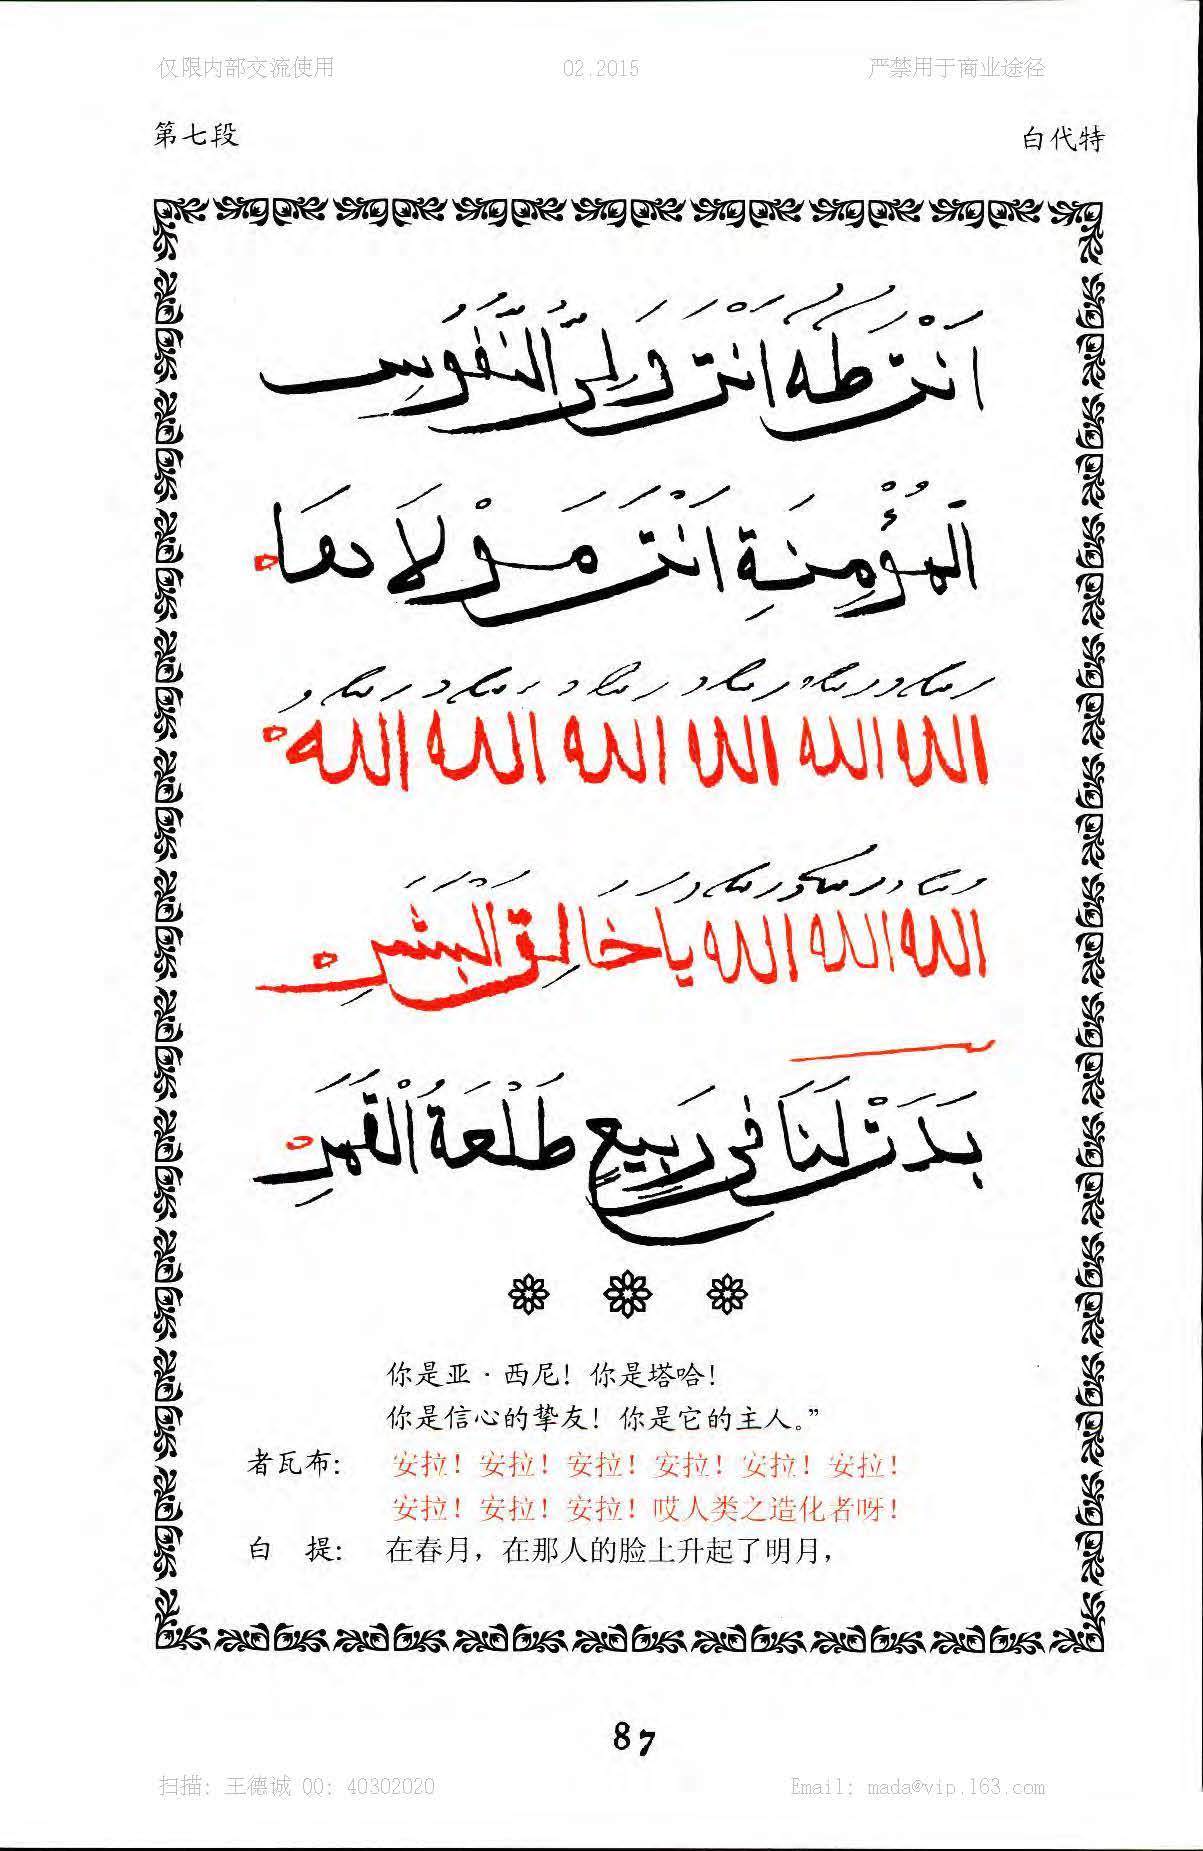 仅限内部交流使用 02.2015 严禁用于商业途径
第七段 白代特
اَنْتَ طٰهٰ اَنْتَ وَلِىُّ النُّفُوسِ
اَلْمُؤْمِنَةِ اَنْتَ مَوْلَاهَا
اَللّٰهُ اَللّٰهُ اَللّٰهُ اَللّٰهُ اَللّٰهُ اَللّٰهُ
اَللّٰهُ اَللّٰهُ اَللّٰهُ يَا خَالِقَ الْبَشَرِ
بَدَتْ لَنَا فِى رَبِيعٍ طَلْعَةُ الْقَمَرِ
你是亚·西尼！你是塔哈！
你是信心的挚友！你是它的主人。”
者瓦布： 安拉！安拉！安拉！安拉！安拉！安拉！
安拉！安拉！安拉！哎人类之造化者呀！
白 提： 在春月，在那人的脸上升起了明月，
87
扫描：王德诚 QQ：40302020 Email：mada@vip.163.com